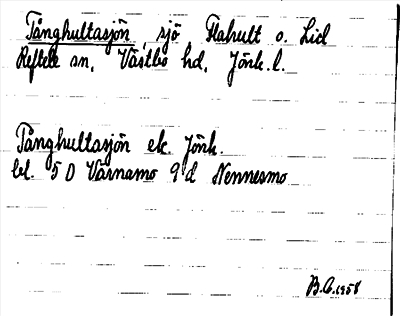 Tånghultasjön, sjö Flahult o. Lid
Reftele sn. Västbo hd. Jönk. l.
Tånghultasjön ek. Jönk.
bl. 5 D Värnamo 9 d Nennesmo
B.G. 1958